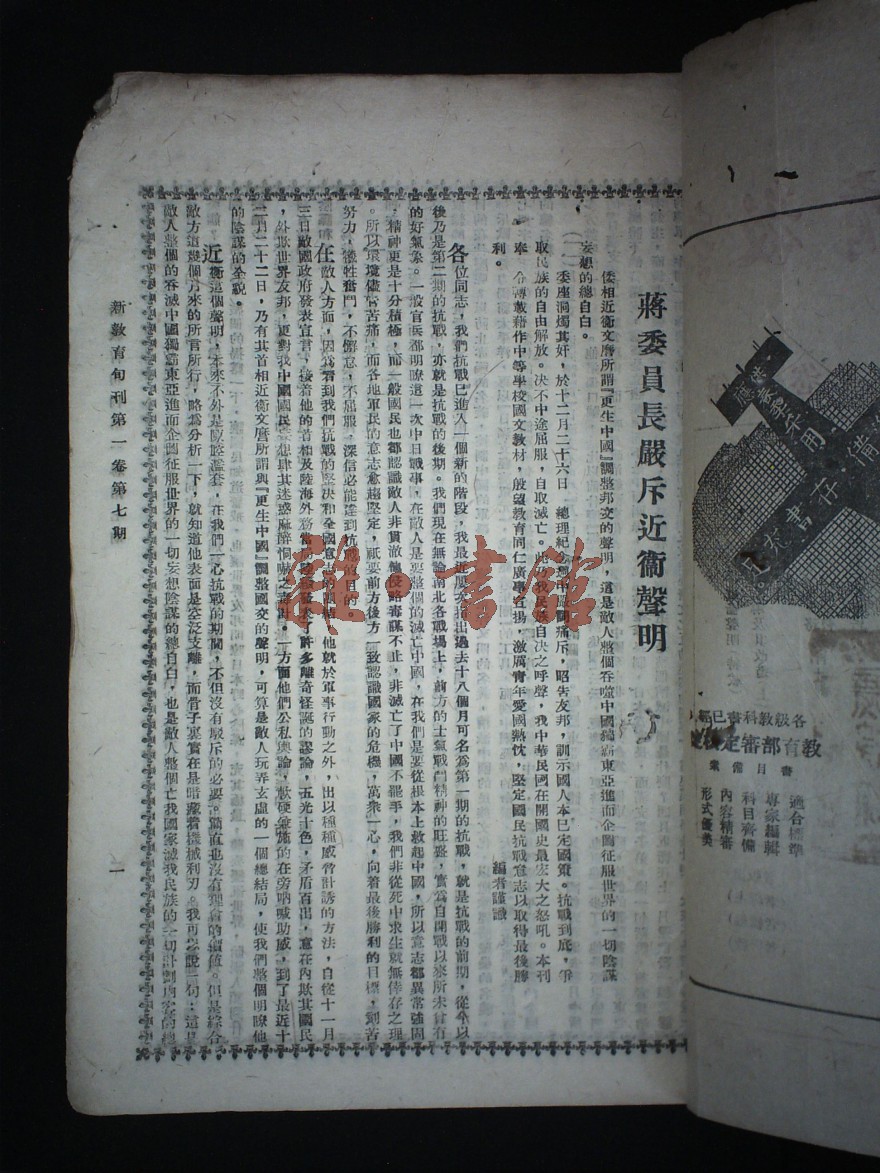 蔣委員長嚴斥近衞聲明
倭相近衞文麿所謂『更生中國』調整邦交的聲明，這是敵人整個吞噬中國獨霸東亞進而企圖征服世界的一切陰謀
妄想的總自白。
委座洞燭其奸，於十二月二十六日　總理紀念週中嚴詞痛斥，昭告友邦，訓示國人本已定國策。抗戰到底，爭
取民族的自由解放。決不中途屈服，自取滅亡。此乃我民族自決之呼聲，我中華民國在開國史最宏大之怒吼。本刊
奉　令轉載藉作中等學校國文教材，殷望教育同仁廣爲宣揚，激厲青年愛國熱忱，堅定國民抗戰意志以取得最後勝
利。
編者謹識
各位同志，我們抗戰已進入一個新的階段，我最近屢次指出過去十八個月可名爲第一期的抗戰，就是抗戰的前期，從今以
後乃是第二期的抗戰，亦就是抗戰的後期。我們現在無論南北各戰場上，前方的士氣戰鬥精神的旺盛，實爲自開戰以來所未嘗有
的好氣象。一般官兵都明瞭這一次中日戰事，在敵人是要整個的滅亡中國，在我們是要從根本上救起中國，所以意志都異常強固
，精神更是十分積極，而一般國民也都認識敵人非貫澈他侵略毒謀不止，非滅亡了中國不罷手，我們非從死中求生就無倖存之理
。所以環境儘管苦痛，而各地軍民的意志愈趨堅定，祇要前方後方一致認識國家的危機，萬衆一心，向着最後勝利的目標，刻苦
努力，犧牲奮鬥，不懈怠，不屈服，深信必能達到抗戰的目的。
在敵人方面，因爲看到我們抗戰的堅決和全國意志的團結，他就於軍事行動之外，出以種種威脅計誘的方法，自從十一月
三日敵國政府發表宣言，接着他的首相及陸海外務當局陸續發表了許多離奇怪誕的謬論，五光十色，矛盾百出，意在內欺其國民
，外欺世界友邦，更對我中國國民妄想肆其迷惑麻醉恫嚇之毒計。一方面他們公私輿論，軟硬兼施的在旁吶喊助威，到了最近十
二月二十二日，乃有其首相近衞文麿所謂與『更生中國』調整國交的聲明，可算是敵人玩弄玄虛的一個總結局，使我們整個明瞭他
的陰謀的全貌。
近衞這個聲明，本來不外是陳腔濫套，在我們一心抗戰的期間，不但沒有駁斥的必要。簡直也沒有理會的價值。但是綜合
敵方這幾個月來的所言所行，略爲分析一下，就知道他表面是空泛支離，而骨子裏實在是暗藏着機械利刃。我可以說一句：這是
敵人整個的吞滅中國獨霸東亞進而企圖征服世界的一切妄想陰謀的總自白，也是敵人整個亡我國家滅我民族的一切計劃內容的總
新教育旬刊第一卷第七期
一
雅。書館
各級教科書已經
教育部審定
書目備索
適合標準
專家編輯
科目齊備
內容精審
形式優美